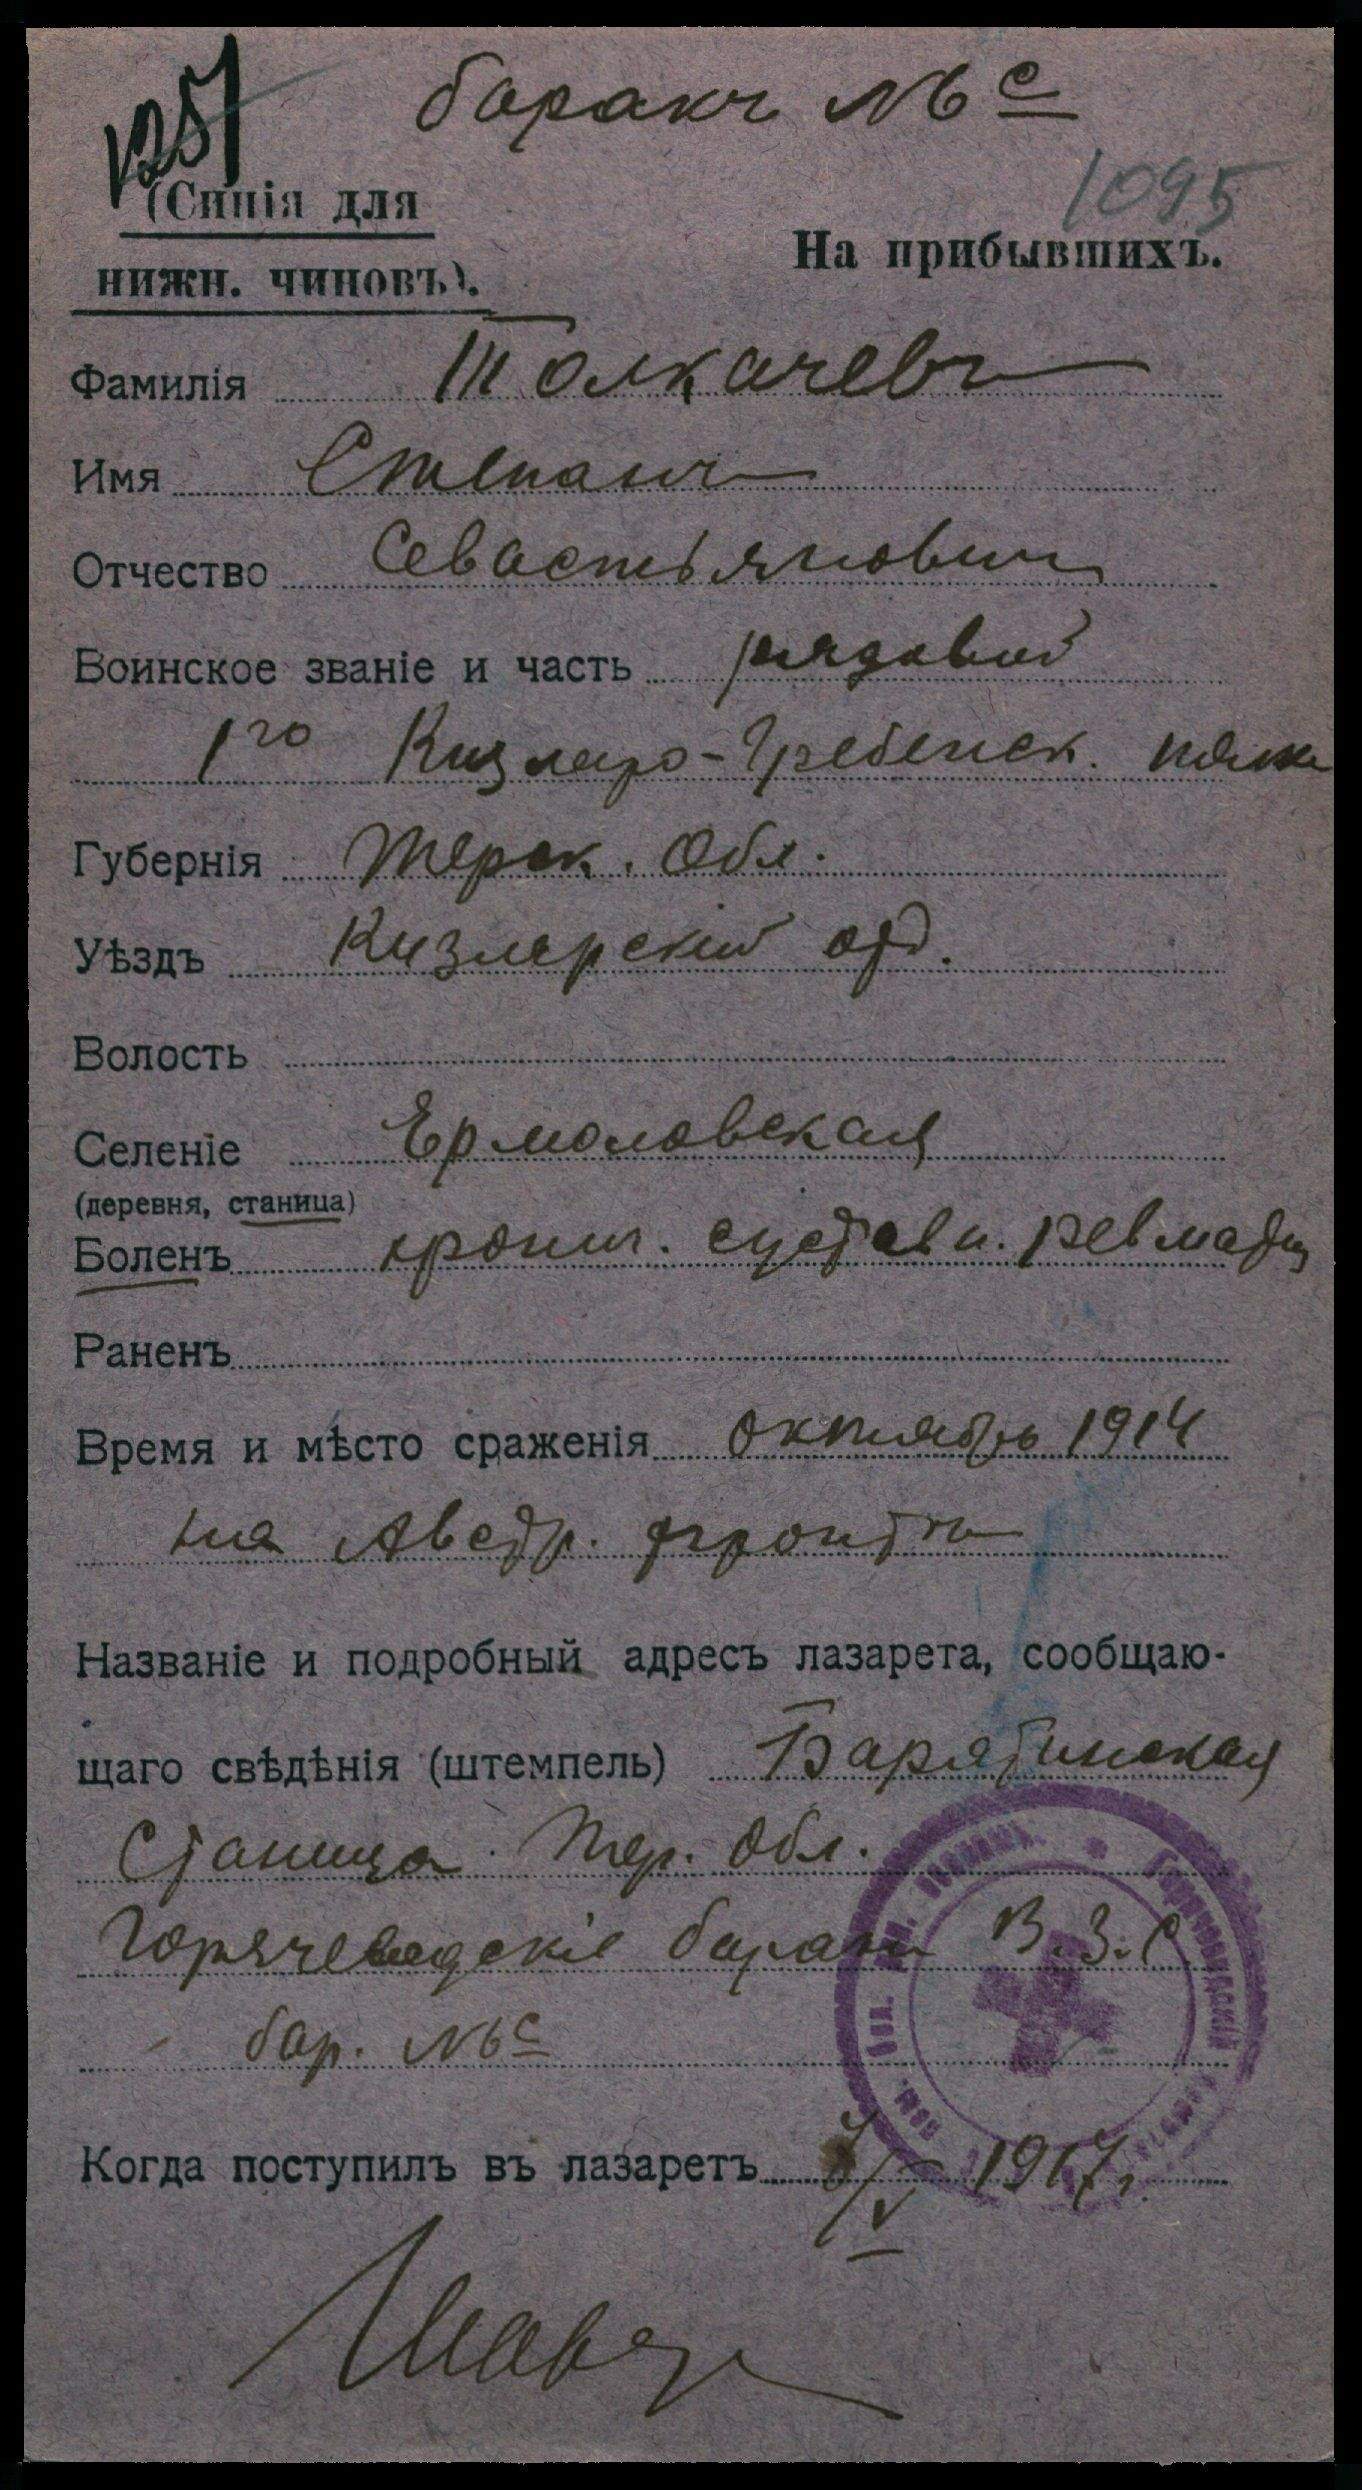 1251
баракъ №6 с
1095
(Синія для
нижн. чиновъ).
На прибывшихъ.
Фамилія Толкачевъ
Имя Степанъ
Отчество Севастьяновичъ
Воинское званіе и часть рядовой
1го Кизляро-Гребенск. полка
Губернія Терск. Обл.
Уѣздъ Кизлярскій отд.
Волость
Селеніе Ермоловская
(деревня, станица)
Боленъ хронич. суставн. ревматиз
Раненъ
Время и мѣсто сраженія октябрь 1914
на Австр. фронтѣ
Названіе и подробный адресъ лазарета, сообщаю-
щаго свѣдѣнія (штемпель) Барятинская
станица Тер. Обл.
Горячеводскіе бараки В.З.С
бар. №6с
Когда поступилъ въ лазаретъ /V 1917г.